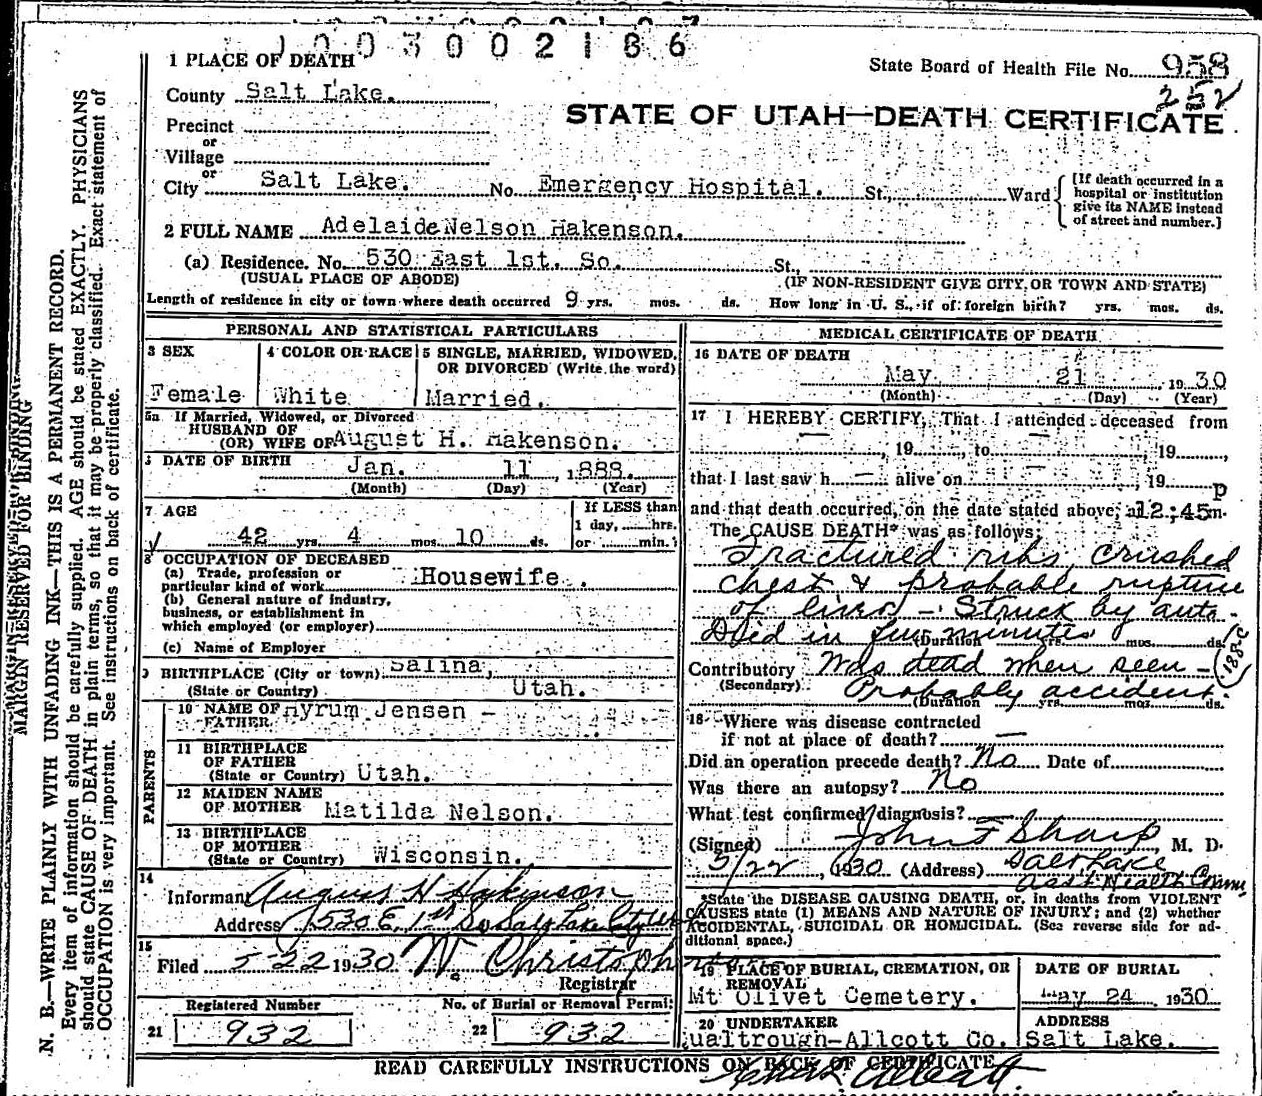 1003002186
1 PLACE OF DEATH
State Board of Health File No. 958
252
County Salt Lake.
STATE OF UTAH—DEATH CERTIFICATE
Precinct
or
Village
or
City Salt Lake. No. Emergency Hospital. St., Ward
[If death occurred in a hospital or institution give its NAME instead of street and number.]
2 FULL NAME Adelaide Nelson Hakenson.
(a) Residence. No. 530 East 1st. So. St.,
(USUAL PLACE OF ABODE) (IF NON-RESIDENT GIVE CITY OR TOWN AND STATE)
Length of residence in city or town where death occurred 9 yrs. mos. ds. How long in U. S., if of foreign birth? yrs. mos. ds.
PERSONAL AND STATISTICAL PARTICULARS
3 SEX
Female
4 COLOR OR RACE
White
5 SINGLE, MARRIED, WIDOWED, OR DIVORCED (Write the word)
Married.
5a If Married, Widowed, or Divorced
HUSBAND OF
(OR) WIFE OF August H. Hakenson.
DATE OF BIRTH Jan. 11, 1888.
(Month) (Day) (Year)
7 AGE
42 yrs. 4 mos. 10 ds.
If LESS than
1 day, hrs.
or min.
8 OCCUPATION OF DECEASED
(a) Trade, profession or
particular kind of work Housewife.
(b) General nature of industry,
business, or establishment in
which employed (or employer)
(c) Name of Employer
9 BIRTHPLACE (City or town) Salina,
(State or Country) Utah.
PARENTS
10 NAME OF FATHER Hyrum Jensen -
11 BIRTHPLACE
OF FATHER
(State or Country) Utah.
12 MAIDEN NAME
OF MOTHER Matilda Nelson.
13 BIRTHPLACE
OF MOTHER
(State or Country) Wisconsin.
14
Informant August H Hakenson
Address 530 E. 1st So Salt Lake City
15
Filed 5-22 1930. W. Christoph
Registrar
Registered Number No. of Burial or Removal Permit
21 932 22 932
MEDICAL CERTIFICATE OF DEATH
16 DATE OF DEATH
May 21 1930
(Month) (Day) (Year)
17 I HEREBY CERTIFY, That I attended deceased from
— , 19 , to — , 19 ,
that I last saw h — alive on — , 19
and that death occurred, on the date stated above, at 12:45 p m.
The CAUSE DEATH* was as follows:
Fractured ribs, crushed
chest & probable rupture
of liver - Struck by auto.
Died in few minutes
(Duration yrs. mos. ds.
188-c
Contributory Was dead when seen -
(Secondary) Probably accident.
(Duration yrs. mos. ds.
18 Where was disease contracted
if not at place of death? —
Did an operation precede death? No Date of
Was there an autopsy? No
What test confirmed diagnosis? —
(Signed) John F Sharp, M. D.
5/22, 1930 (Address) Salt Lake
Asst Health Comm.
*State the DISEASE CAUSING DEATH, or, in deaths from VIOLENT
CAUSES state (1) MEANS AND NATURE OF INJURY; and (2) whether
ACCIDENTAL, SUICIDAL OR HOMICIDAL. (See reverse side for additional space.)
19 PLACE OF BURIAL, CREMATION, OR REMOVAL
Mt Olivet Cemetery.
DATE OF BURIAL
May 24, 1930
20 UNDERTAKER
ualtrough-Allcott Co.
ADDRESS
Salt Lake.
READ CAREFULLY INSTRUCTIONS ON BACK OF CERTIFICATE
MARGIN RESERVED FOR BINDING
N. B.—WRITE PLAINLY WITH UNFADING INK—THIS IS A PERMANENT RECORD.
Every item of information should be carefully supplied. AGE should be stated EXACTLY. PHYSICIANS
should state CAUSE OF DEATH in plain terms, so that it may be properly classified. Exact statement of
OCCUPATION is very important. See instructions on back of certificate.